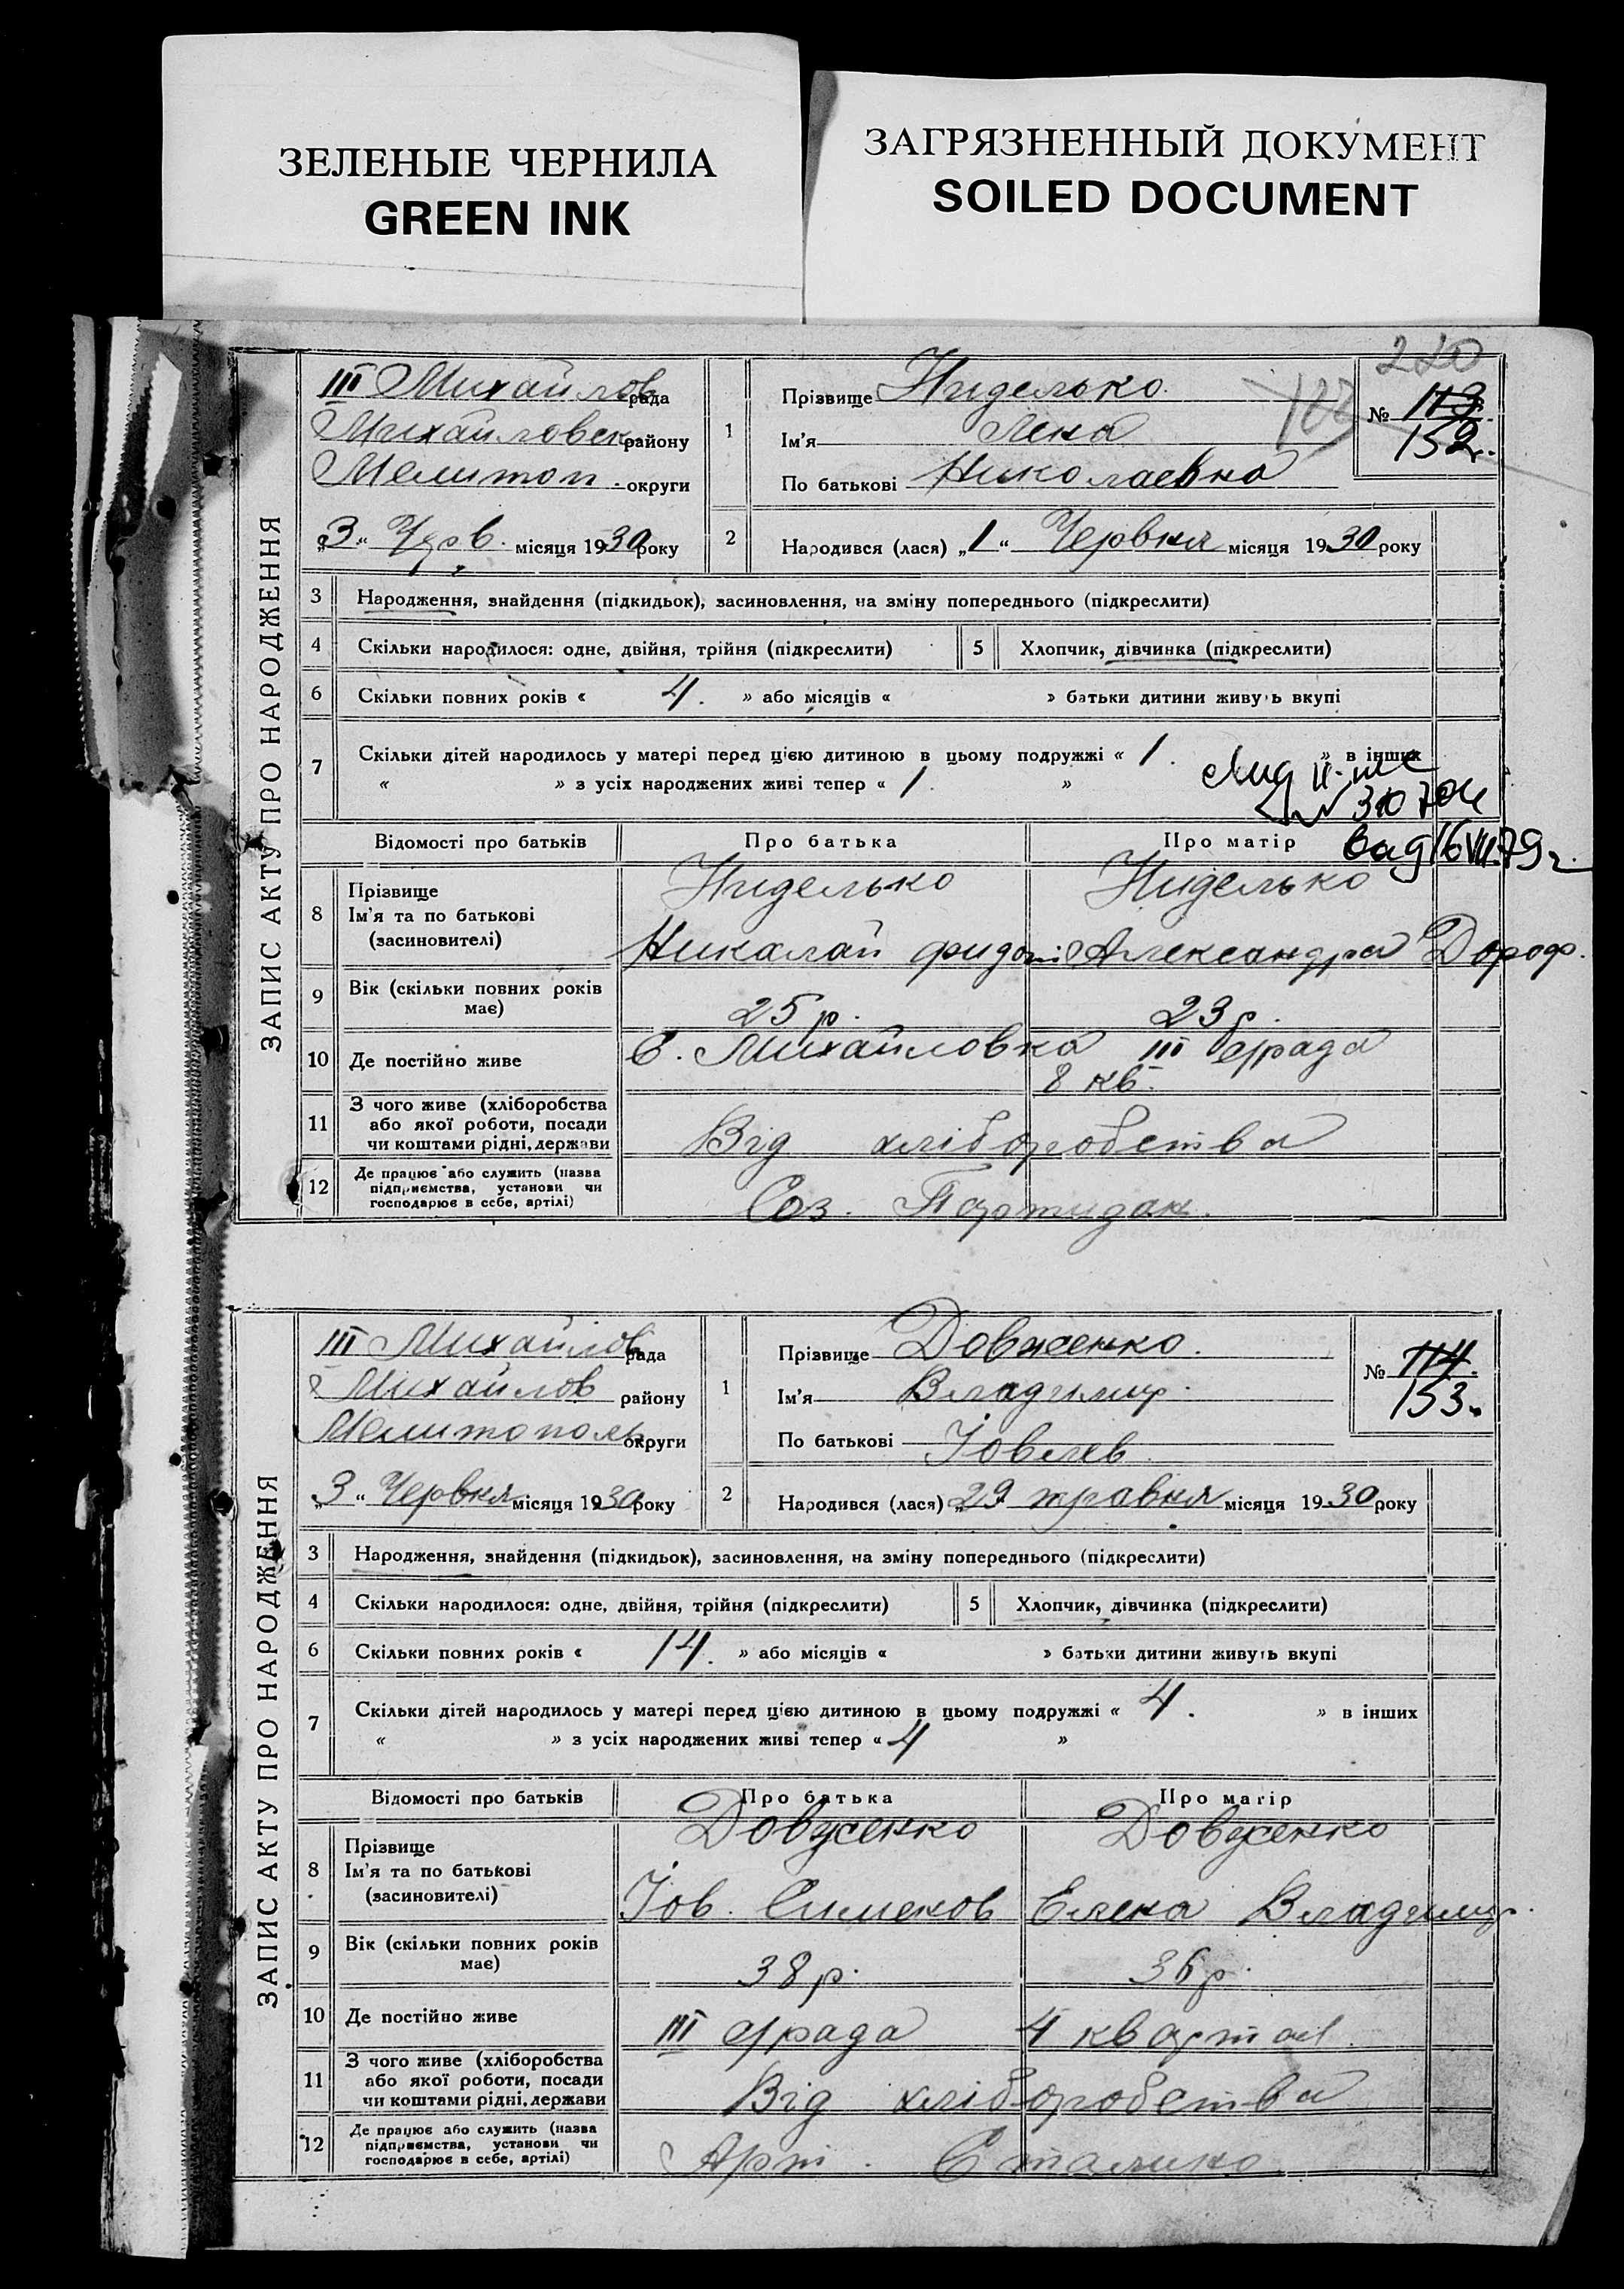 ЗЕЛЕНЫЕ ЧЕРНИЛА
GREEN INK
ЗАГРЯЗНЕННЫЙ ДОКУМЕНТ
SOILED DOCUMENT
ЗАПИС АКТУ ПРО НАРОДЖЕННЯ
220
III Михайлов рада
Михайловск району
Мелитоп. округи
„3“ Черв. місяця 1930 року
1
Прізвище Ниделько
Ім'я Лена
По батькові Николаевна
№ 113
152.
2
Народився (лася) „1“ Червня місяця 1930 року
3 Народження, знайдення (підкидьок), засиновлення, на зміну попереднього (підкреслити)
4 Скільки народилося: одне, двійня, трійня (підкреслити) 5 Хлопчик, дівчинка (підкреслити)
6 Скільки повних років « 4. » або місяців « » батьки дитини живуть вкупі
7 Скільки дітей народилось у матері перед цією дитиною в цьому подружжі « 1. » в інших
« » з усіх народжених живі тепер « 1. »
вад 16 VII 79 г.
Відомості про батьків Про батька Про матір
8 Прізвище Ниделько Ниделько
Ім'я та по батькові
(засиновителі) Николай Александра Дороф.
9 Вік (скільки повних років має) 25 р. 23 р.
10 Де постійно живе С. Михайловка III с/рада
8 кв.
11 З чого живе (хліборобства
або якої роботи, посади
чи коштами рідні, держави Від хліборобства
12 Де працює або служить (назва
підприємства, установи чи
господарює в себе, артілі) Соз. Партизан.
ЗАПИС АКТУ ПРО НАРОДЖЕННЯ
III Михайлов рада
Михайлов району
Мелитополь округи
„3“ Червня місяця 1930 року
1
Прізвище Довженко.
Ім'я Владимир.
По батькові Йовлев
№ 114.
153.
2
Народився (лася) „29 травня місяця 1930 року
3 Народження, знайдення (підкидьок), засиновлення, на зміну попереднього (підкреслити)
4 Скільки народилося: одне, двійня, трійня (підкреслити) 5 Хлопчик, дівчинка (підкреслити)
6 Скільки повних років « 14. » або місяців « » батьки дитини живуть вкупі
7 Скільки дітей народилось у матері перед цією дитиною в цьому подружжі « 4. » в інших
« » з усіх народжених живі тепер « 4 »
Відомості про батьків Про батька Про матір
8 Прізвище Довженко Довженко
Ім'я та по батькові
(засиновителі) Йов. Сименов Елена Владимир.
9 Вік (скільки повних років має) 38 р. 36 р.
10 Де постійно живе III с/рада 4 квартал.
11 З чого живе (хліборобства
або якої роботи, посади
чи коштами рідні, держави Від хліборобства
12 Де працює або служить (назва
підприємства, установи чи
господарює в себе, артілі) Арт. Сталино